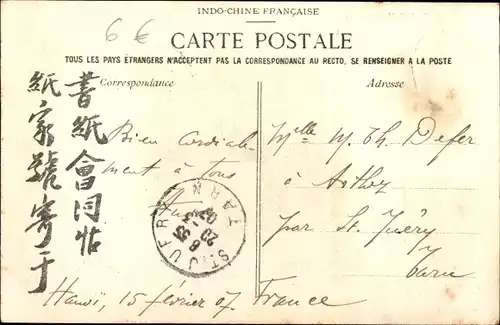 6 €
INDO-CHINE FRANÇAISE
CARTE POSTALE
TOUS LES PAYS ÉTRANGERS N'ACCEPTENT PAS LA CORRESPONDANCE AU RECTO, SE RENSEIGNER A LA POSTE
Correspondance
Adresse
書紙會同帖
紙家號寄于
Bien cordiale-
ment à tous
Hanoï, 15 février 07
Mlle M. Th. Defer
à Arthez
par St. Juéry
Tarn
France
ST JUERY
TARN